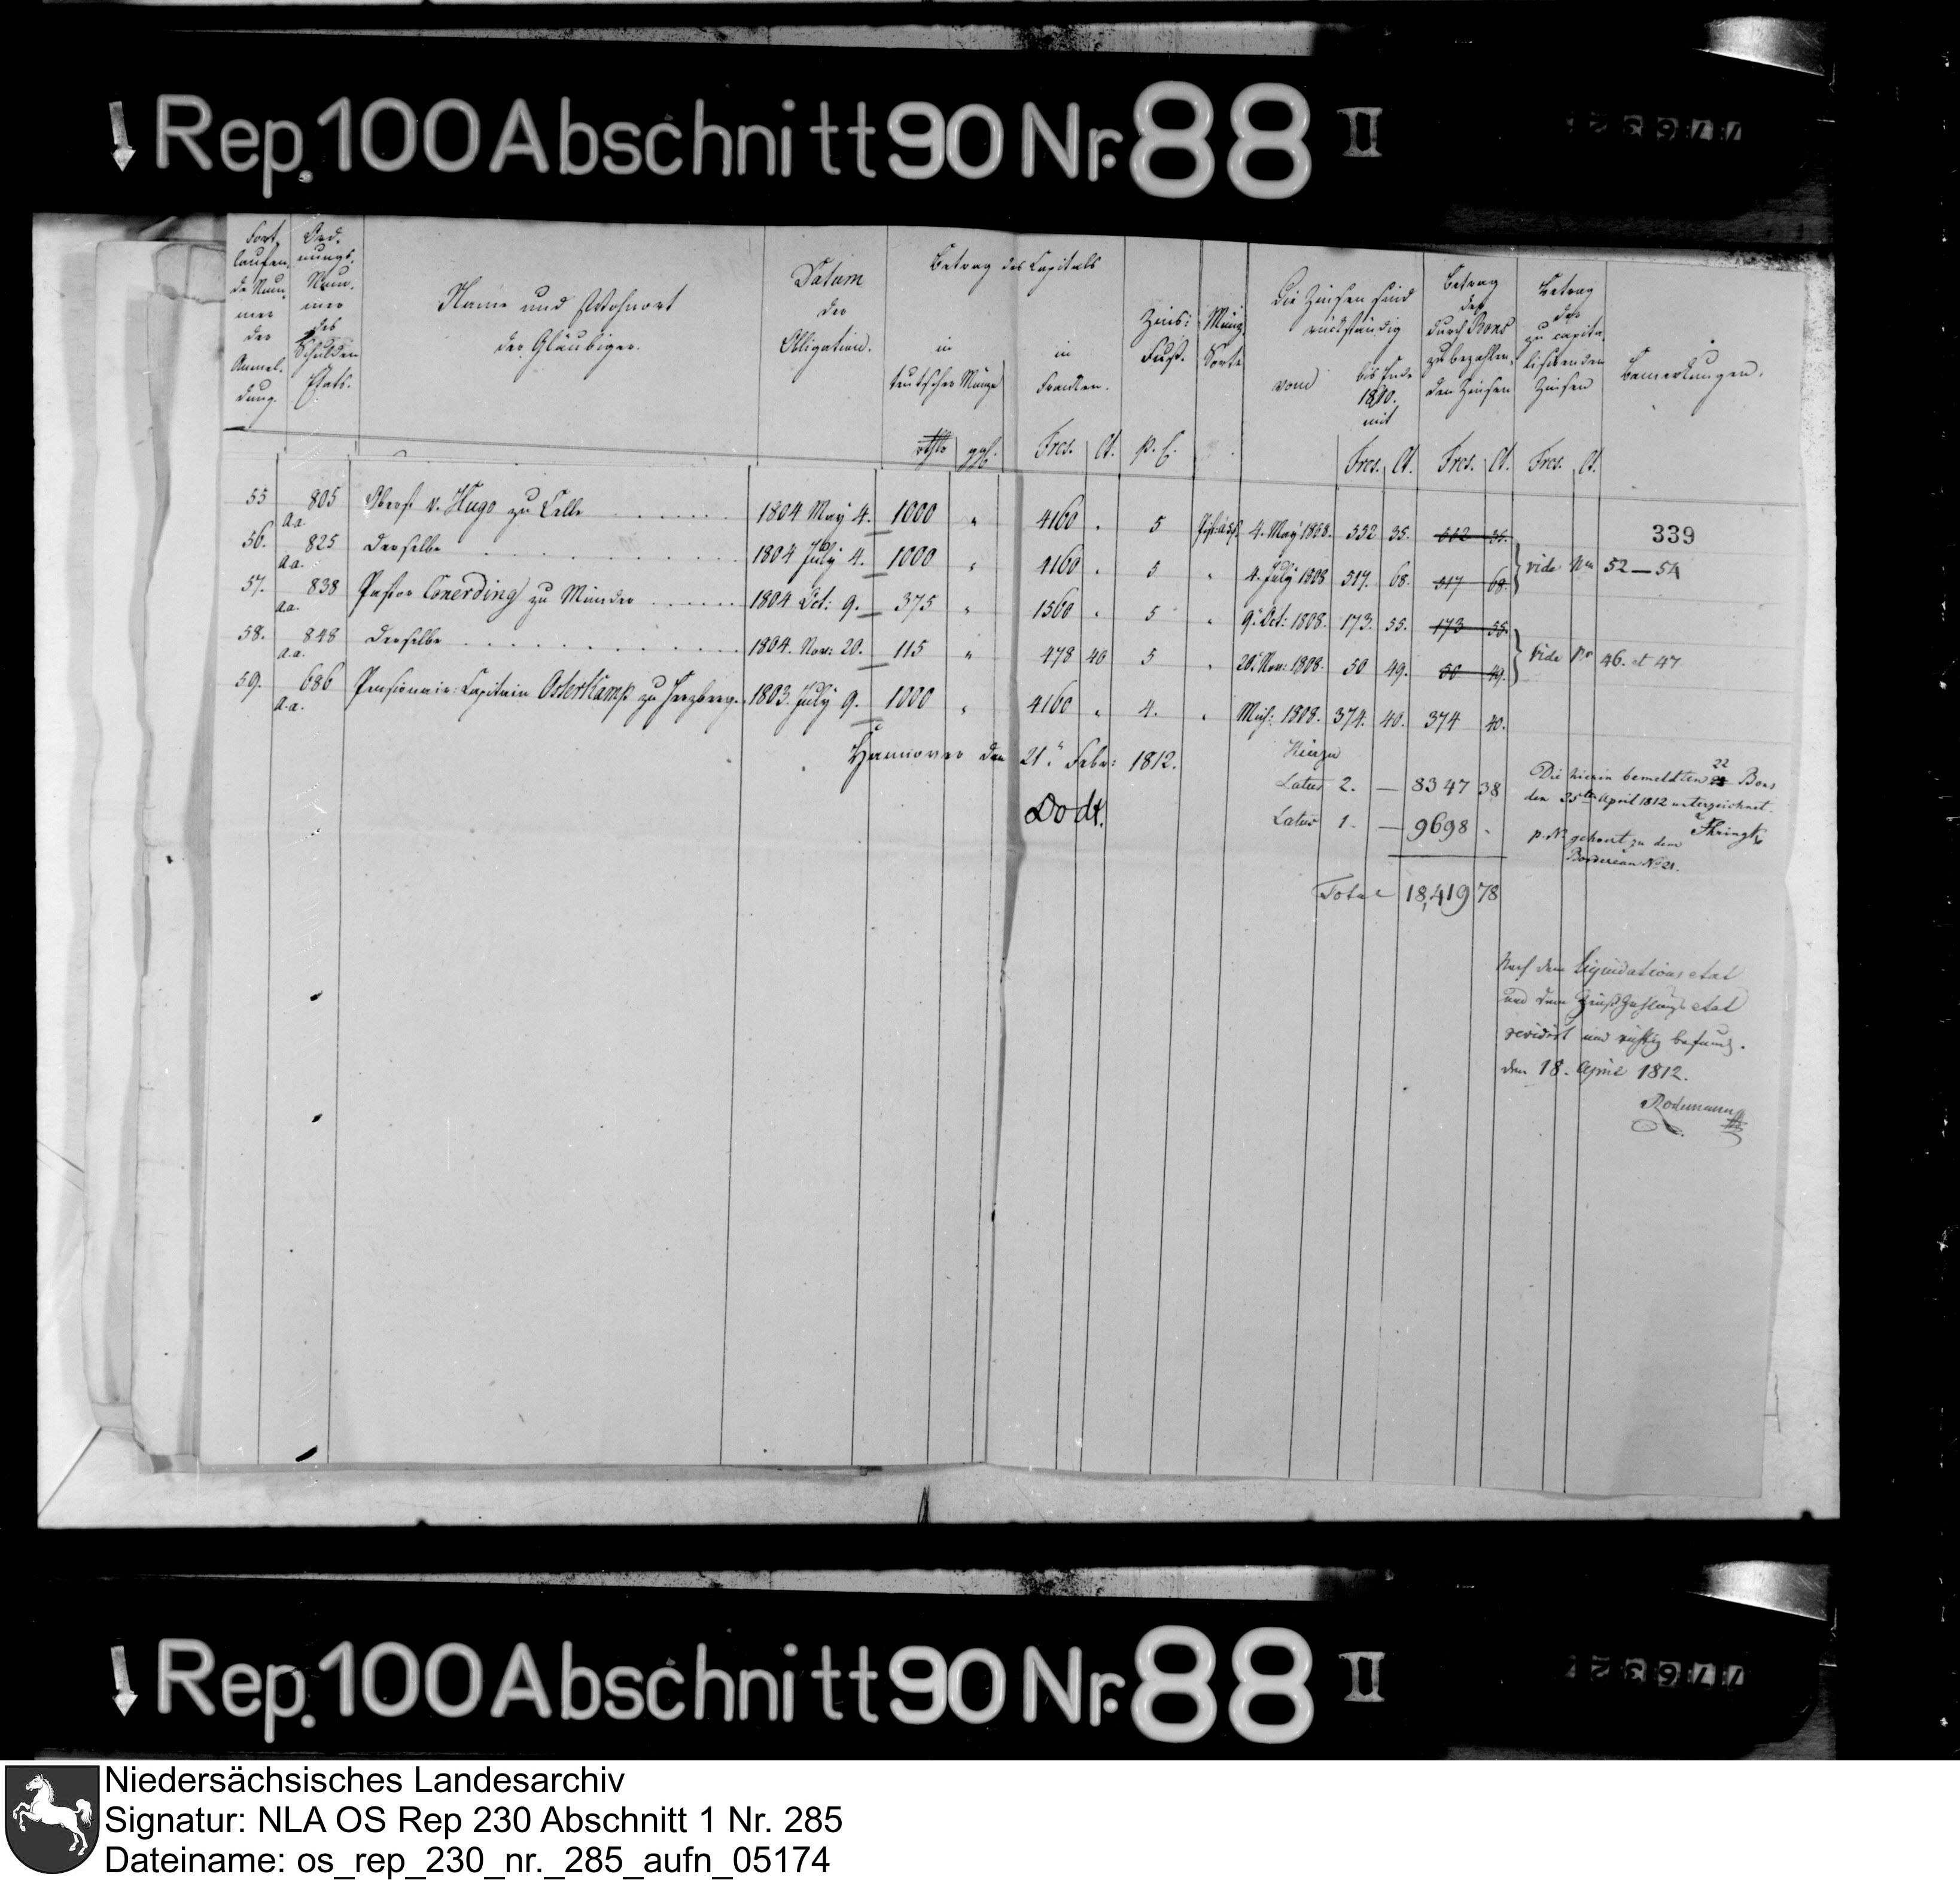 Rep. 100 Abschnitt 90 Nr. 88 II
77632
Fort-
laufen-
de Num-
mer
der
Anmel-
dung.
Ord-
nungs-
Num-
mer
des
Schulden
Etats.
Name und Wohnort
der Gläubiger.
Datum
der
Obligation.
Betrag des Capitals
in
teutscher Münze
in
Franken.
Zins-
Fuß.
Münz
Sorte
Die Zinsen sind
rückständig
vom
bis Ende
1810.
mit
Betrag
der
durch Bons
zu bezahlen-
den Zinsen
Betrag
der
zu capita-
lisirenden
Zinsen
Bemerkungen.
rthlr ggl. Frcs. Ct. p. C. Frcs. Ct. Frcs. Ct. Frcs. Ct.
339
55 805 aa Oberst v. Hugo zu Celle 1804 May 4. 1000 " 4160 . 5 4. May 1808. 552 35. 552 35.
56. 825 aa. Derselbe 1804 July 4. 1000 " 4160 . 5 " 4. July 1808 517. 68. 517 68. } vide Nris 52 — 54
57. 838 aa. Pastor Conerding zu Münder 1804 Oct: 9. 375 " 1560 . 5 " 9. Oct: 1808. 173. 55. 173 55.
58. 848 aa. Derselbe 1804. Nov: 20. 115 " 478 40 5 " 20. Nov: 1808. 50 49. 50 49. } vide Nr 46. et 47
59. 686 a.a. Pensionair-Capitain Osterkamp zu Herzberg. 1803. July 9. 1000 " 4160 " 4. " Mich: 1808. 374. 40. 374 40.
Hannover den 21. Febr: 1812.
Dodt.
Hinzu
Latus 2. — 8347 38
Latus 1. — 9698 .
Total 18,419 78
Die hierin bemeldten 22 Bons
den 25ten April 1812 unterzeichnet.
p. N. gehoert zu dem
Bordereau No 21.
Nach dem Liquidationsetat
und dem Zinszahlungsetat
revidirt und richtig befund.
den 18. April 1812.
Rodemann
Rep. 100 Abschnitt 90 Nr. 88 II
77632
Niedersächsisches Landesarchiv
Signatur: NLA OS Rep 230 Abschnitt 1 Nr. 285
Dateiname: os_rep_230_nr._285_aufn_05174